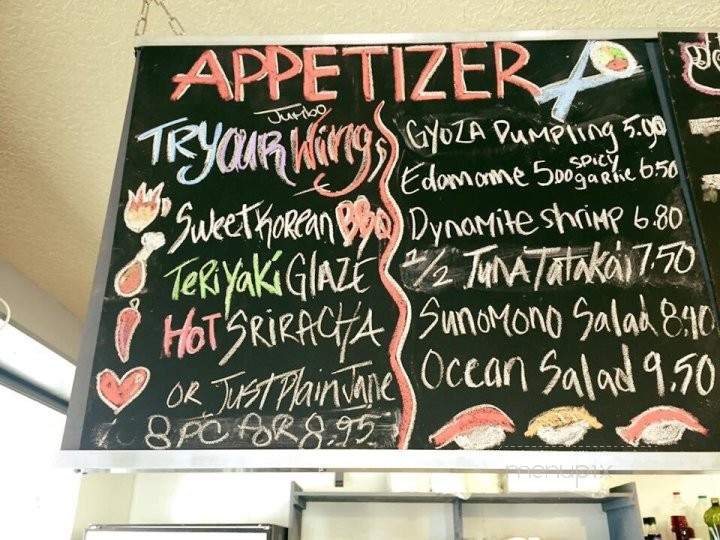 APPETIZER
Jumbo
TRY OUR Wings
Sweet Korean BBQ
TeRiYaki GLAZE
HOT SRIRACHA
OR Just Plain Jane
8 PC FOR 8.95
GYOZA Dumpling 5.90
Edamame 5.00 SPICY garlic 6.50
Dynamite shrimp 6.80
1/2 TUNA Tatakai 7.50
Sunomono Salad 8.40
Ocean Salad 9.50
menupix